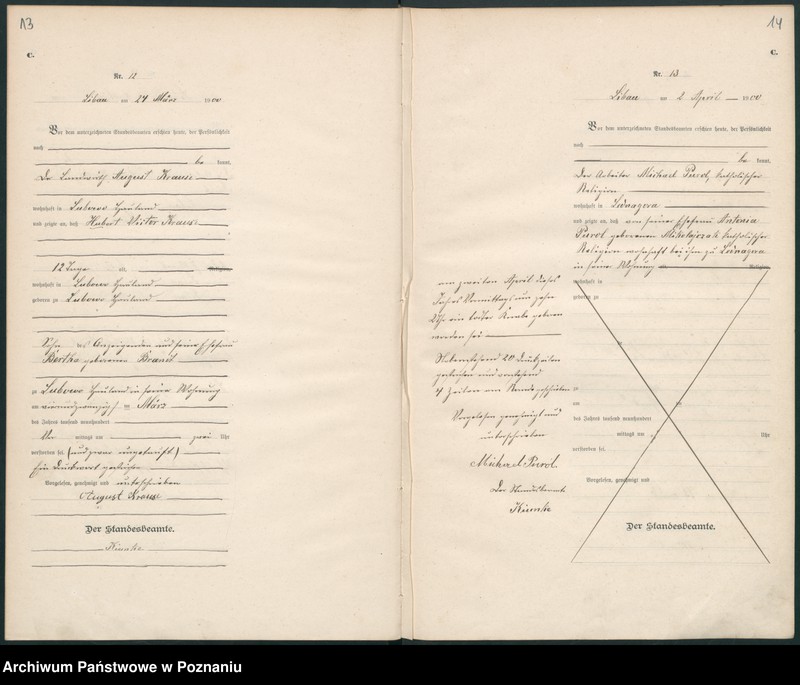 13
C.
Nr. 12
Libau am 24 März 1900
Vor dem unterzeichneten Standesbeamten erschien heute, der Persönlichkeit
nach
be kannt,
Der Landwirth August Krause
wohnhaft in Lubowo Hauland
und zeigte an, daß Hubert Victor Krause
12 Tage alt,
Religion
wohnhaft in Lubowo Hauland
geboren zu Lubowo Hauland
Sohn des Anzeigenden und seiner Ehefrau
Bertha geborenen Brandt
zu Lubowo Hauland in seiner Wohnung
am vierundzwanzigsten März
des Jahres tausend neunhundert
Vor mittags um zwei Uhr
verstorben sei (und zwar ungetauft)
Ein Druckwort gestrichen
Vorgelesen, genehmigt und unterschrieben
August Krause
Der Standesbeamte.
14
C.
Nr. 13
Libau am 2 April 1900
Vor dem unterzeichneten Standesbeamten erschien heute, der Persönlichkeit
nach
be kannt,
Der Arbeiter Michael Purol, katholischer
Religion
wohnhaft in
und zeigte an, daß von seiner Ehefrau Antonia
Purol geborenen Mikolajczak katholischer
Religion wohnhaft bei ihm zu
in seiner Wohnung
Religion
wohnhaft in
geboren zu
am zweiten April dieses
Jahres Vormittags um zehn
Uhr ein todter Knabe geboren
worden sei
Nebenstehend 20 Druckzeilen
gestrichen und vorstehend
4 Zeilen am Rande geschrieben
Vorgelesen genehmigt und
unterschrieben
Michael Purol.
Der Standesbeamte
zu
am
des Jahres tausend neunhundert
mittags um
Uhr
verstorben sei.
Vorgelesen, genehmigt und
Der Standesbeamte.
Archiwum Państwowe w Poznaniu